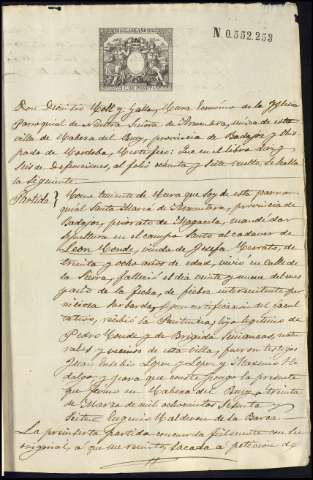 N 0.552.253
Don Dionisio Moll y Galla, Cura Ecónomo de la Yglesia
Parroquial de Nuestra Señora de Armentera, única de esta
villa de Cabeza del Buey, provincia de Badajoz y Obis
pado de Córdoba, Certifico: Que en el libro
seis de Defunciones, al folio ochenta y siete vuelto, se halla
la siguiente
Partida} Como teniente de Cura que soy de esta parro
quial Santa María de Armentera, provincia de
Badajoz, priorato de Magacela, mandé dar
sepultura en el campo Santo al cadaver de
León Conde, viudo de Josefa
treinta y ocho años de edad, vivió en calle de
la Sierra, falleció el día veinte y nueve del mes
y año de la fecha, de fiebre intermitente per
niciosa por certificación del facul
tativo, recibió la Penitencia, hijo legítimo de
Pedro Conde y de Brigida Simancas, natu
rales y vecinos de esta villa, fueron testigos
Juan López y López y Hi
dalgo y para que conste pongo la presente
que firmo en Cabeza del Buey a treinta
de Marzo de mil ochocientos setenta y
siete= Eugenio Calderon de la Barca
La preinserta partida concuerda fielmente con su
original, a que me remito, sacada a petición de